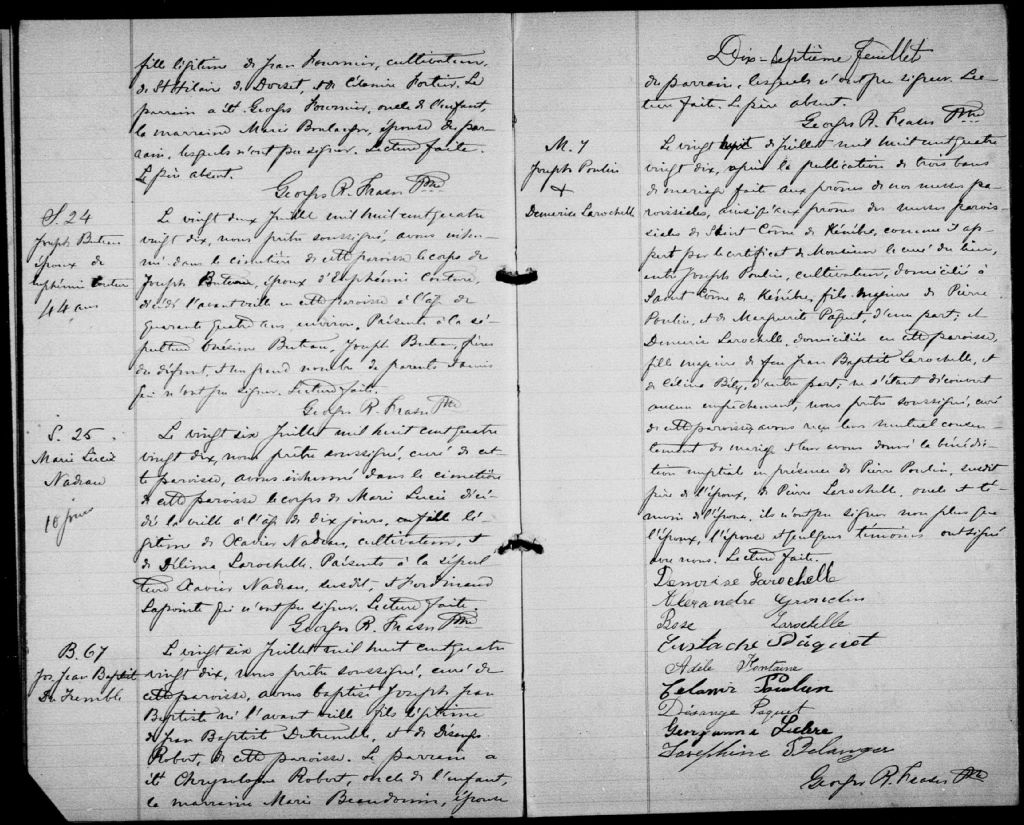 fille légitime de Jean Fournier, cultivateur,
de St Hilaire de Dorset, et de Célanire Fortier. Le
parrain a été Georges Fournier, oncle de l'enfant,
la marraine Marie Boulanger, épouse du par-
rain, lesquels n'ont pu signer. Lecture faite.
Le père absent.
Georges R. Fraser Ptre
S. 24
Joseph Buteau
époux de
Euphémie Couture
44 ans
Le vingt deux Juillet mil huit cent quatre
vingt dix, nous prêtre soussigné, avons inhu-
mé dans le cimetière de cette paroisse le corps de
Joseph Buteau, époux d'Euphémie Couture,
décédé l'avant veille en cette paroisse à l'âge de
quarante quatre ans, environ. Présents à la sé-
pulture Onésime Buteau, Joseph Buteau, frères
du défunt, et un grand nombre de parents et amis
qui n'ont pu signer. Lecture faite.
Georges R. Fraser Ptre
S. 25
Marie Lucie
Nadeau
10 jours
Le vingt six Juillet mil huit cent quatre
vingt dix, nous prêtre soussigné, curé de cet-
te paroisse, avons inhumé dans le cimetière
de cette paroisse le corps de Marie Lucie décé-
dée la veille à l'âge de dix jours, fille lé-
gitime de Xavier Nadeau, cultivateur, et
de Délima Larochelle. Présents à la sépul-
ture Xavier Nadeau, susdit, et Ferdinand
Lapointe qui n'ont pu signer. Lecture faite.
Georges R. Fraser Ptre
B. 67
Jos. Jean Baptiste
De Tremble
Le vingt six Juillet mil huit cent quatre
vingt dix, nous prêtre soussigné, curé de
cette paroisse, avons baptisé Joseph Jean
Baptiste né l'avant veille fils légitime
de Jean Baptiste Detremble, et de Désanges
Robert, de cette paroisse. Le parrain a
été Chrysologue Robert, oncle de l'enfant,
la marraine Marie Beaudoin, épouse
Dix-septième feuillet
du parrain, lesquels n'ont pu signer. Lec-
ture faite. Le père absent.
Georges R. Fraser Ptre
M. 7
Joseph Poulin
&
Demerise Larochelle
Le vingt huit de Juillet mil huit cent quatre
vingt dix, après la publication de trois bans
de mariage fait aux prônes de nos messes pa-
roissiales, ainsi qu'aux prônes des messes parois-
siales de Saint Côme de Kénébec, comme il ap-
pert par le certificat de Monsieur le curé du lieu,
entre Joseph Poulin, cultivateur, domicilié à
Saint Côme de Kénébec, fils majeur de Pierre
Poulin, et de Marguerite Paquet, d'une part; et
Demerise Larochelle, domiciliée en cette paroisse,
fille majeure de feu Jean Baptiste Larochelle, et
de Célina Bély, d'autre part; ne s'étant découvert
aucun empêchement, nous prêtre soussigné, curé
de cette paroisse, avons reçu leur mutuel consen-
tement de mariage et leur avons donné la bénédic-
tion nuptiale en présence de Pierre Poulin, susdit
père de l'époux, de Pierre Larochelle, oncle et té-
moin de l'épouse, ils n'ont pu signer non plus que
l'époux, l'épouse et quelques témoins ont signé
avec nous. Lecture faite.
Demerise Larochelle
Alexandre Grondin
Rose Larochelle
Eustache Pâquet
Adèle Fontaine
Celanir Poulin
Désange Paquet
Georgianna Leclerc
Josephine Belanger
Georges R. Fraser Ptre